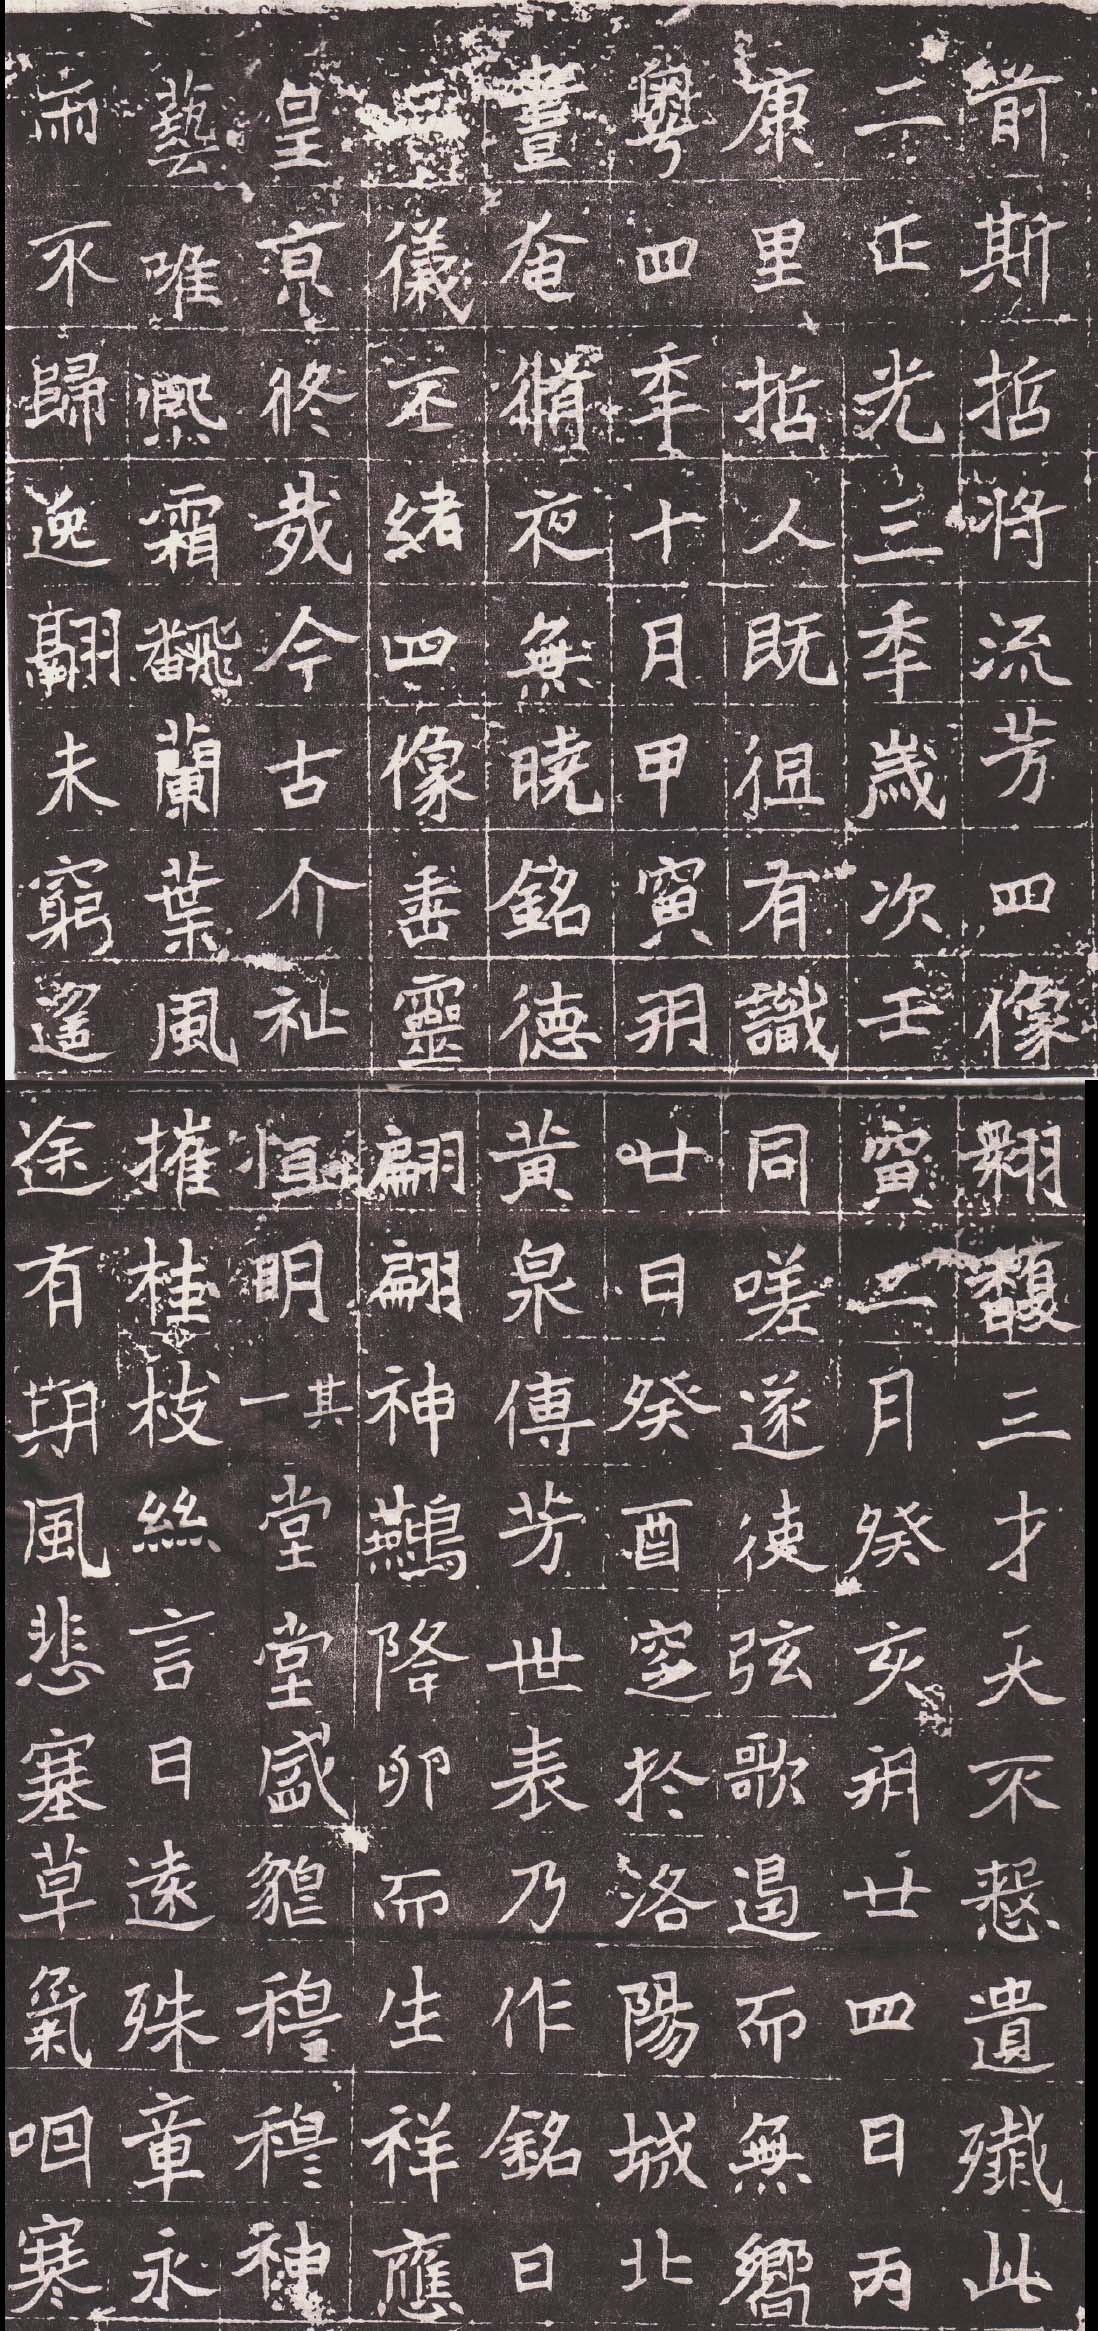 前斯哲將流芳四像翱馥三才天不憖遺殲此
二正光三年歲次壬寅二月癸亥朔廿四日丙
康里哲人既徂有識同嗟遂使弦歌遏而無嚮
粵四年十月甲寅朔廿日癸酉窆於洛陽城北
晝奄脩夜無曉銘德黃泉傳芳世表乃作銘曰
二儀丕緒四像垂靈翩翩神鷰降卵而生祥應
皇終哉今古介祉恒明其一堂堂盛貌穆穆神
藝唯熙霜飜蘭葉風摧桂枝絲言日遠殊章永
而不歸逸翮未窮遙途有期風悲塞草氣咽寒